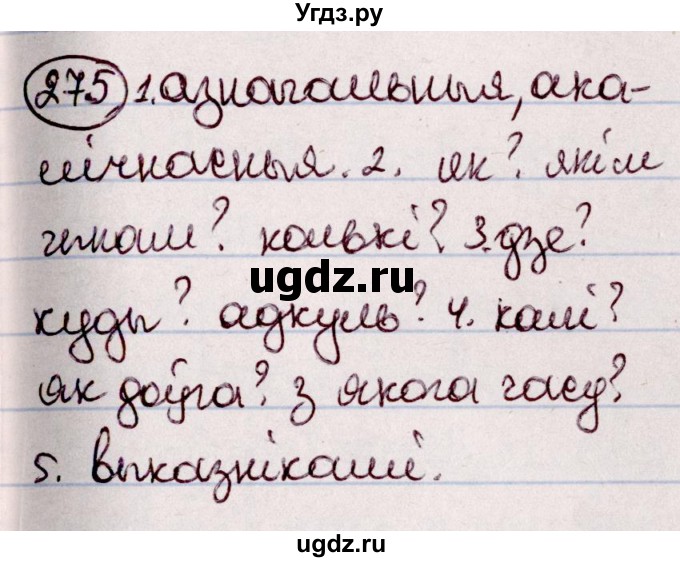 Угдз.ру
275 1. азначальныя, ака-
лічнасныя. 2. як? якім
чынам? колькі? 3. дзе?
ugdz.ru
куды? адкуль? 4. калі?
як доўга? з якога часу?
5. выказнікамі.
ugdz.ru